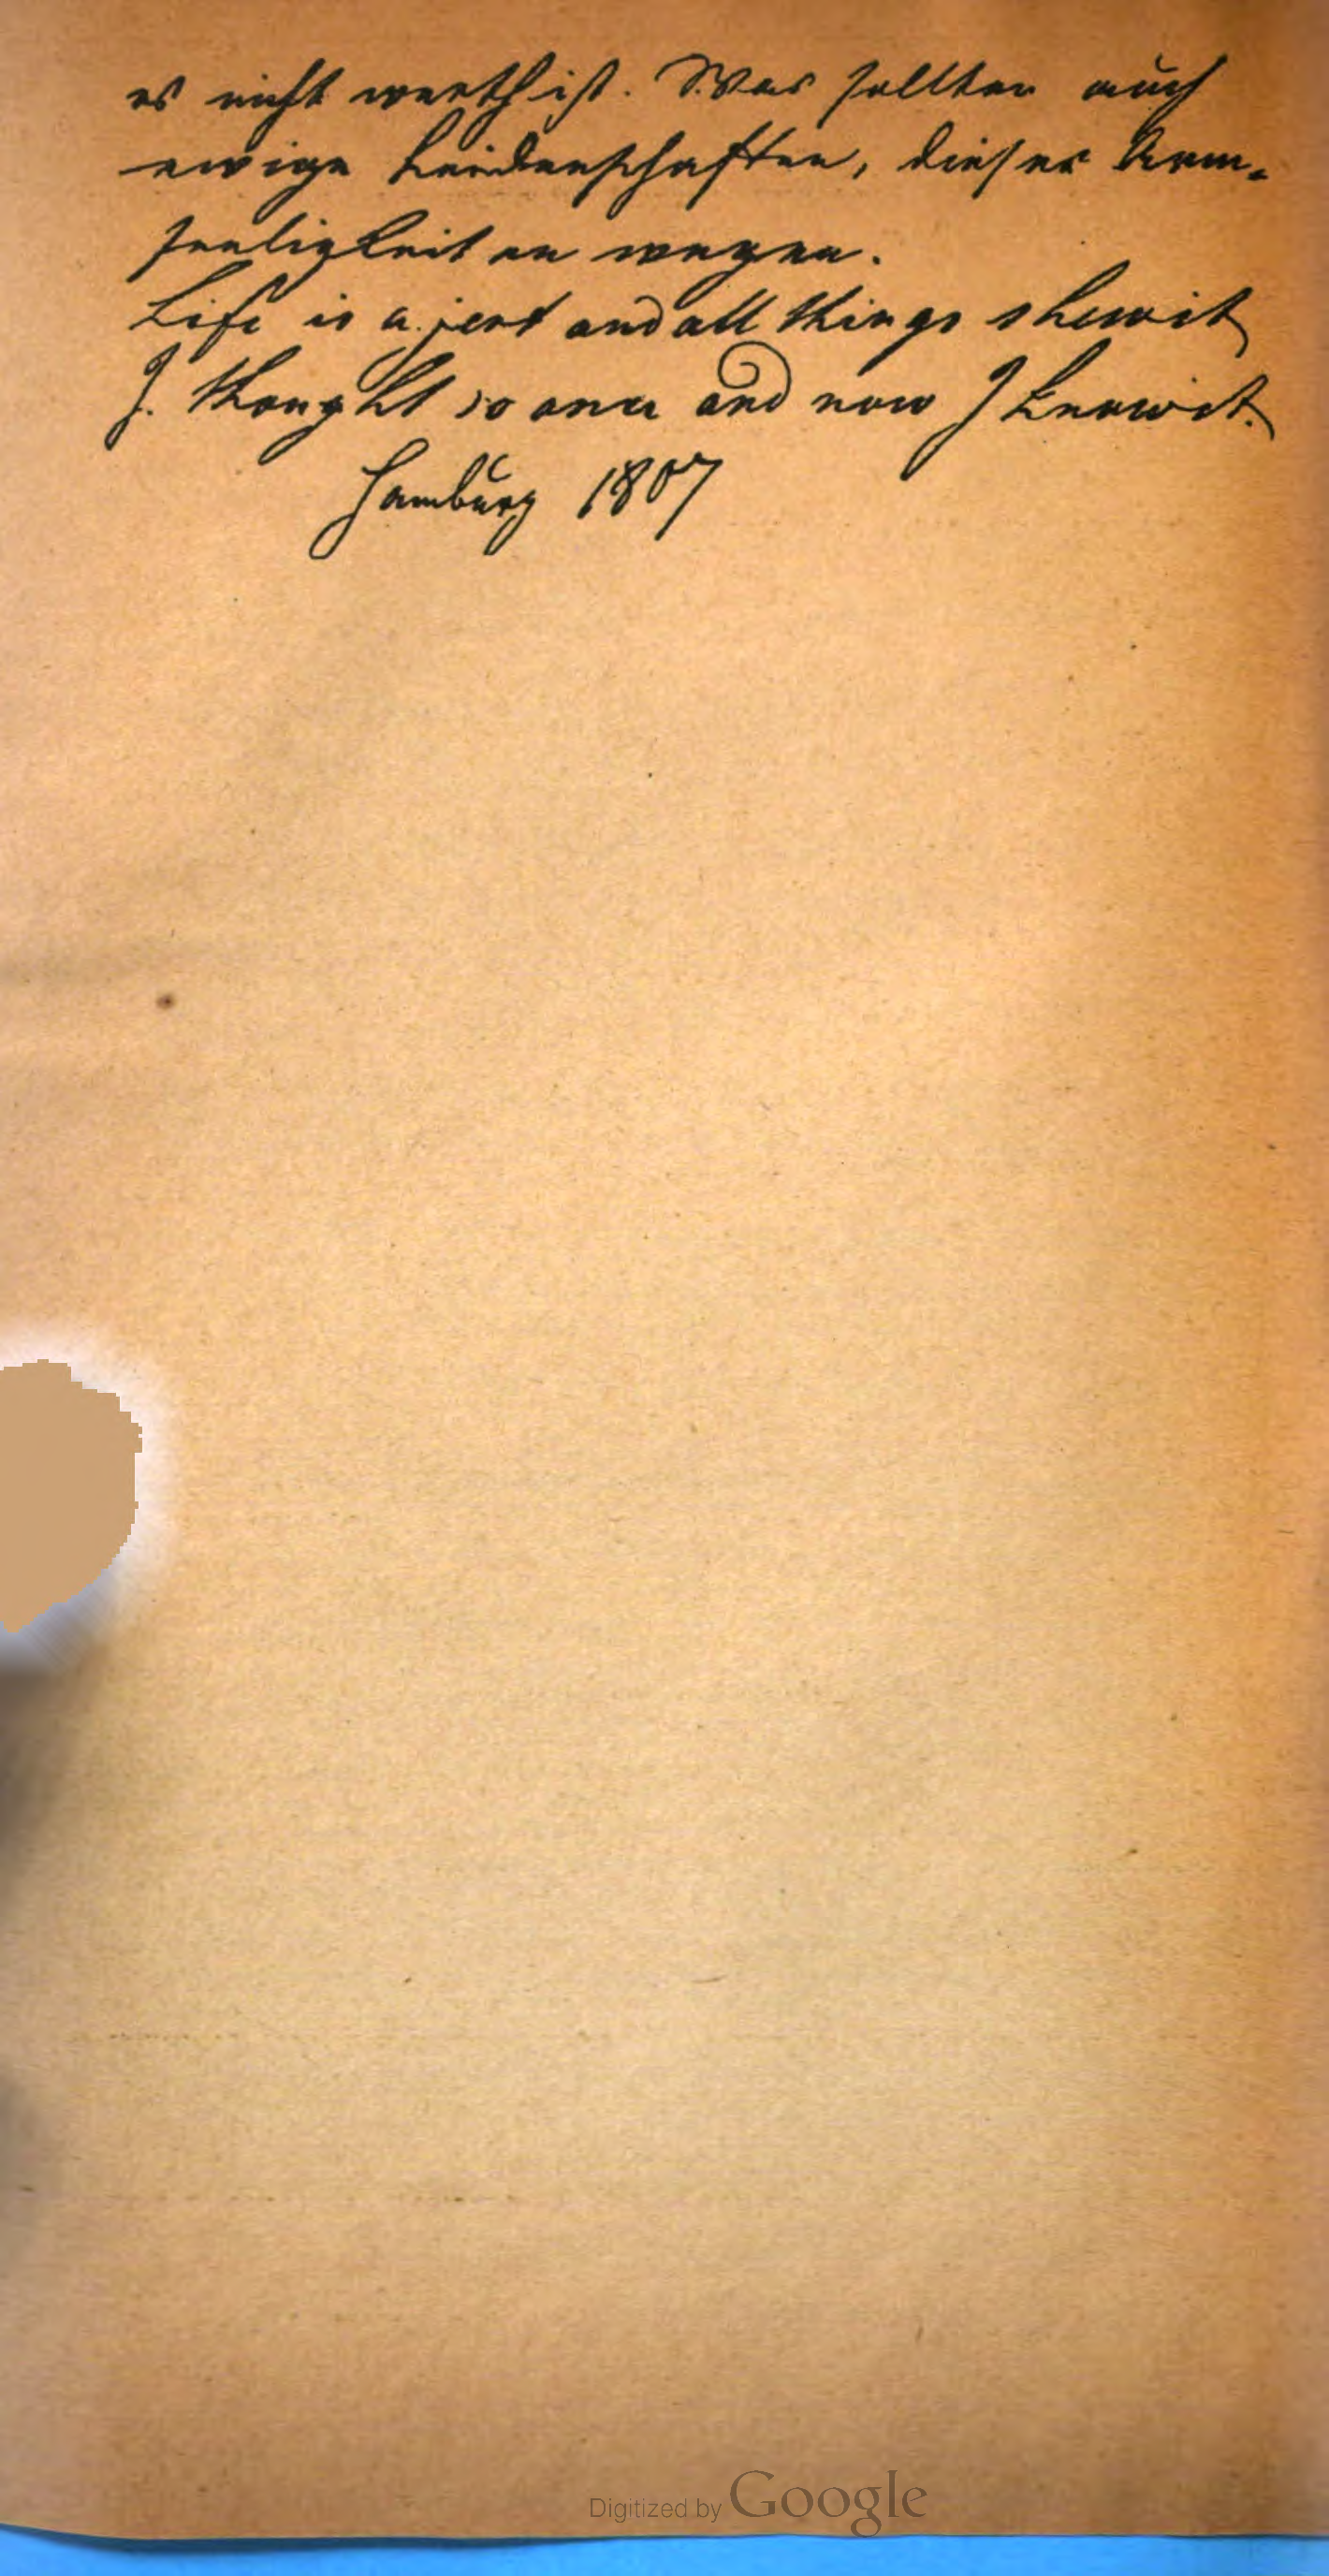 es nicht werth ist. Was sollten auch
ewige Leidenschaften, dieser Arm-
seeligkeiten wegen.
Life is a jest and all things shew it
I thought so once and now I know it.
Hamburg 1807
Digitized by Google